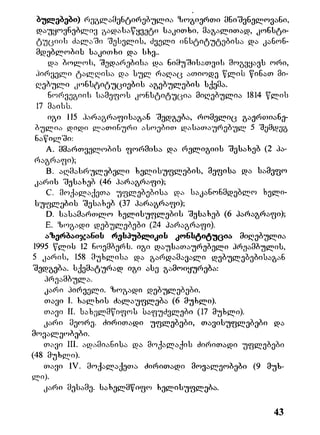 ბულებები) რეგლამენტირებულია ზოგიერთი მნიშვნელოვანი,
დაუყოვნებლივ გადასაწყვეტი საკითხი, მაგალითად, კონსტი-
ტუციის ძალაში შესვლის, ძველი ინსტიტუტებისა და კანონ-
მდებლობის საკითხი და სხვ.
და ბოლოს, შედარებისა და ნიმუშისათვის მოგვყავს ორი,
პირველი ტალღისა და სულ რაღაც ათიოდე წლის წინათ მი-
ღებული კონსტიტუციების აგებულების სქემა.
ნორვეგიის სამეფოს კონსტიტუცია მიღებულია 1814 წლის
17 მაისს.
იგი 115 პარაგრაფისაგან შედგება, რომელიც გაერთიანე-
ბულია დიდი ლათინური ასოებით დასათაურებულ 5 შემდეგ
ნაწილში:
A. მმართველობის ფორმისა და რელიგიის შესახებ (2 პა-
რაგრაფი);
B. აღმასრულებელი ხელისუფლების, მეფისა და სამეფო
კარის შესახებ (46 პარაგრაფი);
C. მოქალაქეთა უფლებებისა და საკანონმდებლო ხელი-
სუფლების შესახებ (37 პარაგრაფი);
D. სასამართლო ხელისუფლების შესახებ (6 პარაგრაფი);
E. ზოგადი დებულებები (24 პარაგრაფი).
აზერბაიჯანის რესპუბლიკის კონსტიტუცია მიღებულია
1995 წლის 12 ნოემბერს. იგი დაუსათაურებელი პრეამბულის,
5 კარის, 158 მუხლისა და გარდამავალი დებულებებისაგან
შედგება. სქემატურად იგი ასე გამოიყურება:
პრეამბულა.
კარი პირველი. ზოგადი დებულებები.
თავი I. ხალხის ძალაუფლება (6 მუხლი).
თავი II. სახელმწიფოს საფუძვლები (17 მუხლი).
კარი მეორე. ძირითადი უფლებები, თავისუფლებები და
მოვალეობები.
თავი III. ადამიანისა და მოქალაქის ძირითადი უფლებები
(48 მუხლი).
თავი IV. მოქალაქეთა ძირითადი მოვალეობები (9 მუხ-
ლი).
კარი მესამე. სახელმწიფო ხელისუფლება.
43